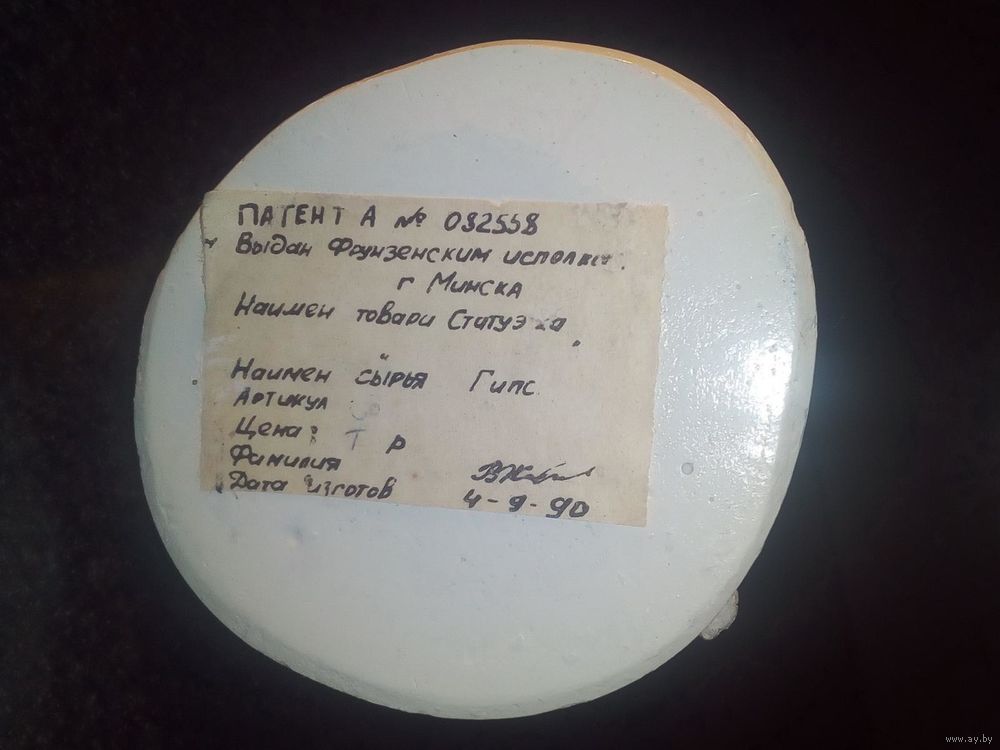 ПАТЕНТ А № 092558
Выдан Фрунзенским исполко
г Минска
Наимен товари Статуэтка
Наимен сырья Гипс
Артикул
Цена: 7 р
Фамилия
Дата изготов 4-9-90
www.ay.by